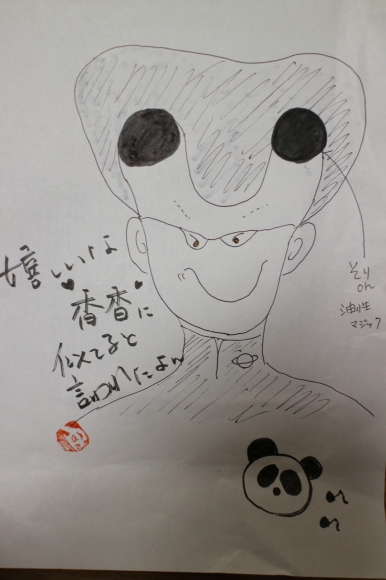 嬉しいな
香香に
似てると
言われたよん
そり
on
油性
マジック